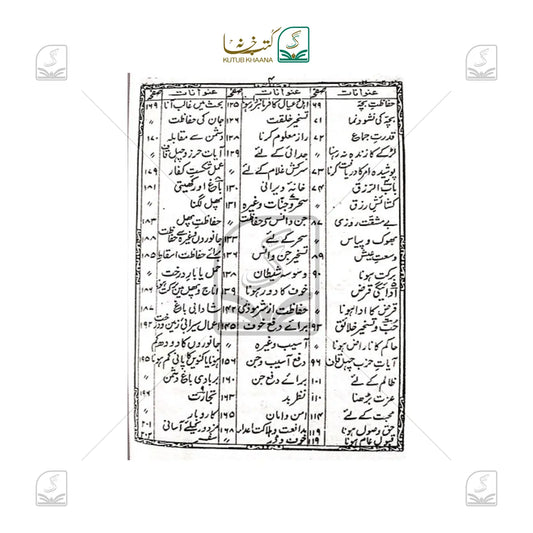 کتب خانہ
KUTUB KHAANA
۴
عنوانات صفحہ عنوانات صفحہ عنوانات صفحہ
حفاظت بچہ ۶۹ اہل و عیال کا فرمانبردار ہونا ۱۲۵ بحث میں غالب آنا ۱۶۹
بچہ کی نشوونما ۷۱ تسخیر خلقت ۱۲۶ جان کی حفاظت 〃
قدرت جماع ۷۲ راز معلوم کرنا ۱۲۸ دشمن سے مقابلہ ۱۷۰
لڑکے کا زندہ نہ رہنا 〃 جدائی کے لئے ۱۲۹ آیات حرز و چہل قاف 〃
پوشیدہ امر کا دریافت کرنا ۷۳ سرکش غلام کے لئے 〃 عمل شکست کفار ۱۷۹
باب الرزق ۷۴ خانہ ویرانی ۱۳۰ باغ اور کھیتی ۱۸۱
کشائش رزق 〃 سحر و جنات وغیرہ ۱۳۱ پھل لگنا 〃
بے مشقت روزی ۸۷ جن و انس کی حفاظت 〃 حفاظت پھل ۱۸۳
بھوک و پیاس 〃 سحر کے لئے ۱۳۳ جانوروں وغیرہ سے حفاظت
وسعت عیش ۸۹ تسخیر جن و انس ۱۳۶ برائے حفاظت اسقاط ۱۸۵
برکت ہونا ۹۰ وسوسہ شیطان ۱۳۸ حمل یا بار درخت
ادائیگی قرض 〃 خوف کا دور ہونا ۱۳۹ اناج و پھل میں
قرض کا ادا ہونا 〃 حفاظت از شر موذی ۱۴۲ شادابی باغ ۱۸۷
حب و تسخیر خلائق ۹۳ برائے دفع خوف ۱۴۵ اعمال سیرابی زمین و درخت ۱۹۲
حاکم کا ناراض ہونا 〃 آسیب وغیرہ 〃 جانوروں کا دودھ کم
آیات حزب چہل قاف ۹۶ دفع آسیب و جن ۱۵۶ ہونا یا کنویں کا پانی کم ہونا ۱۹۵
ظالم کے لئے ۱۰۱ برائے دفع جن ۱۶۰ بربادی باغ دشمن 〃
عزت بڑھنا ۱۱۰ نظر بد ۱۶۳ تجارت و ۱۹۶
محبت کے لئے ۱۱۴ امن و امان ۱۶۵ کاروبار 〃
حق وصول ہونا ۱۱۹ مدافعت و ہلاکت اعداء ۱۶۸ مزدور کیلئے آسانی ۲۰۱
قبول عام ہونا ۱۱۹ خوف و ڈر 〃 سفر ۲۰۳